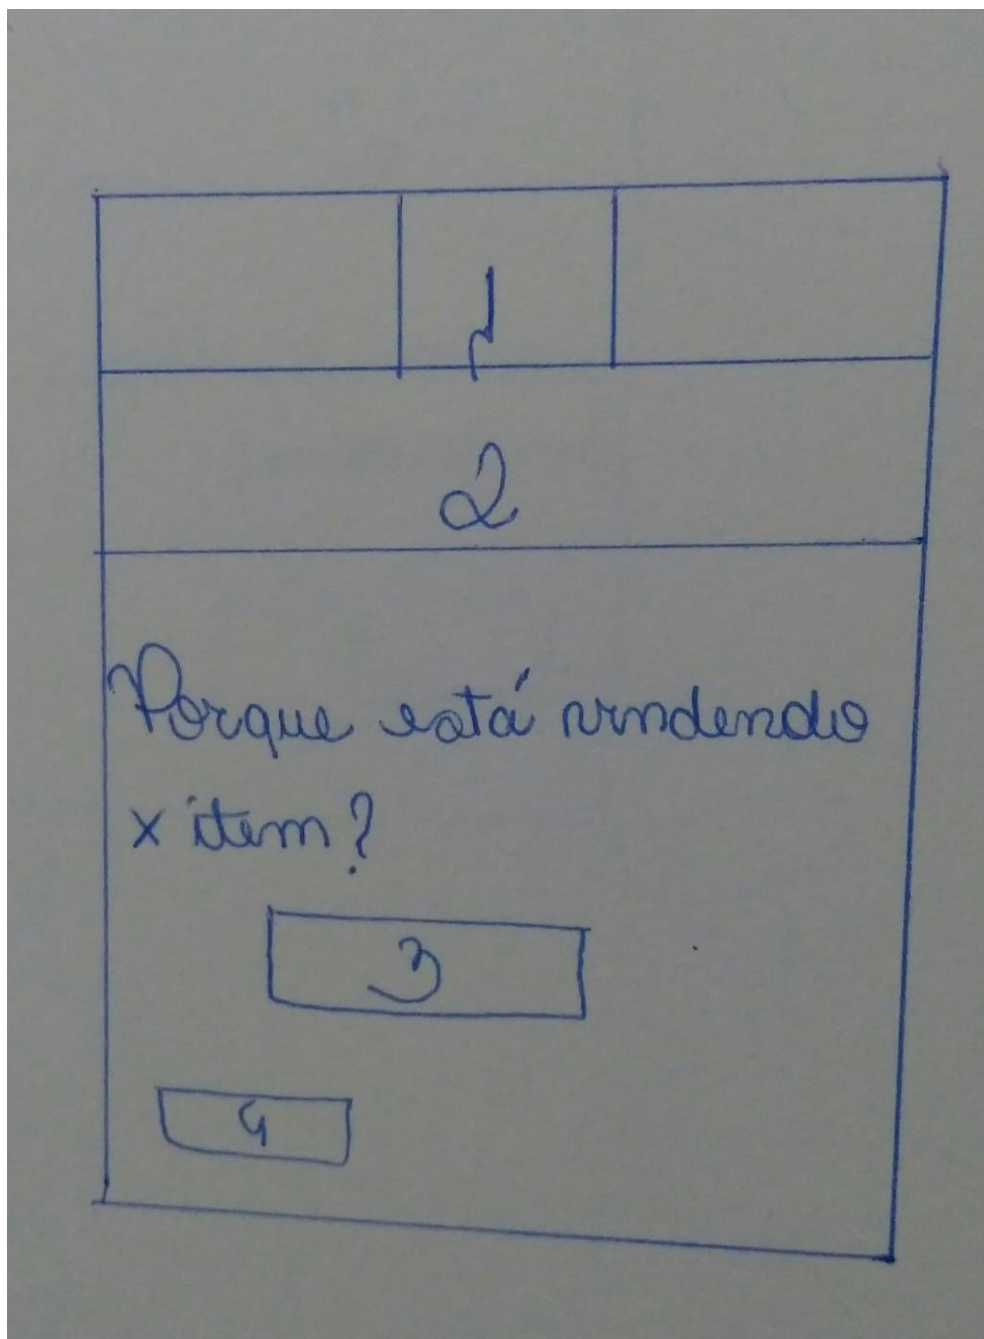 1
2
Porque está vendendo
x item?
3
4